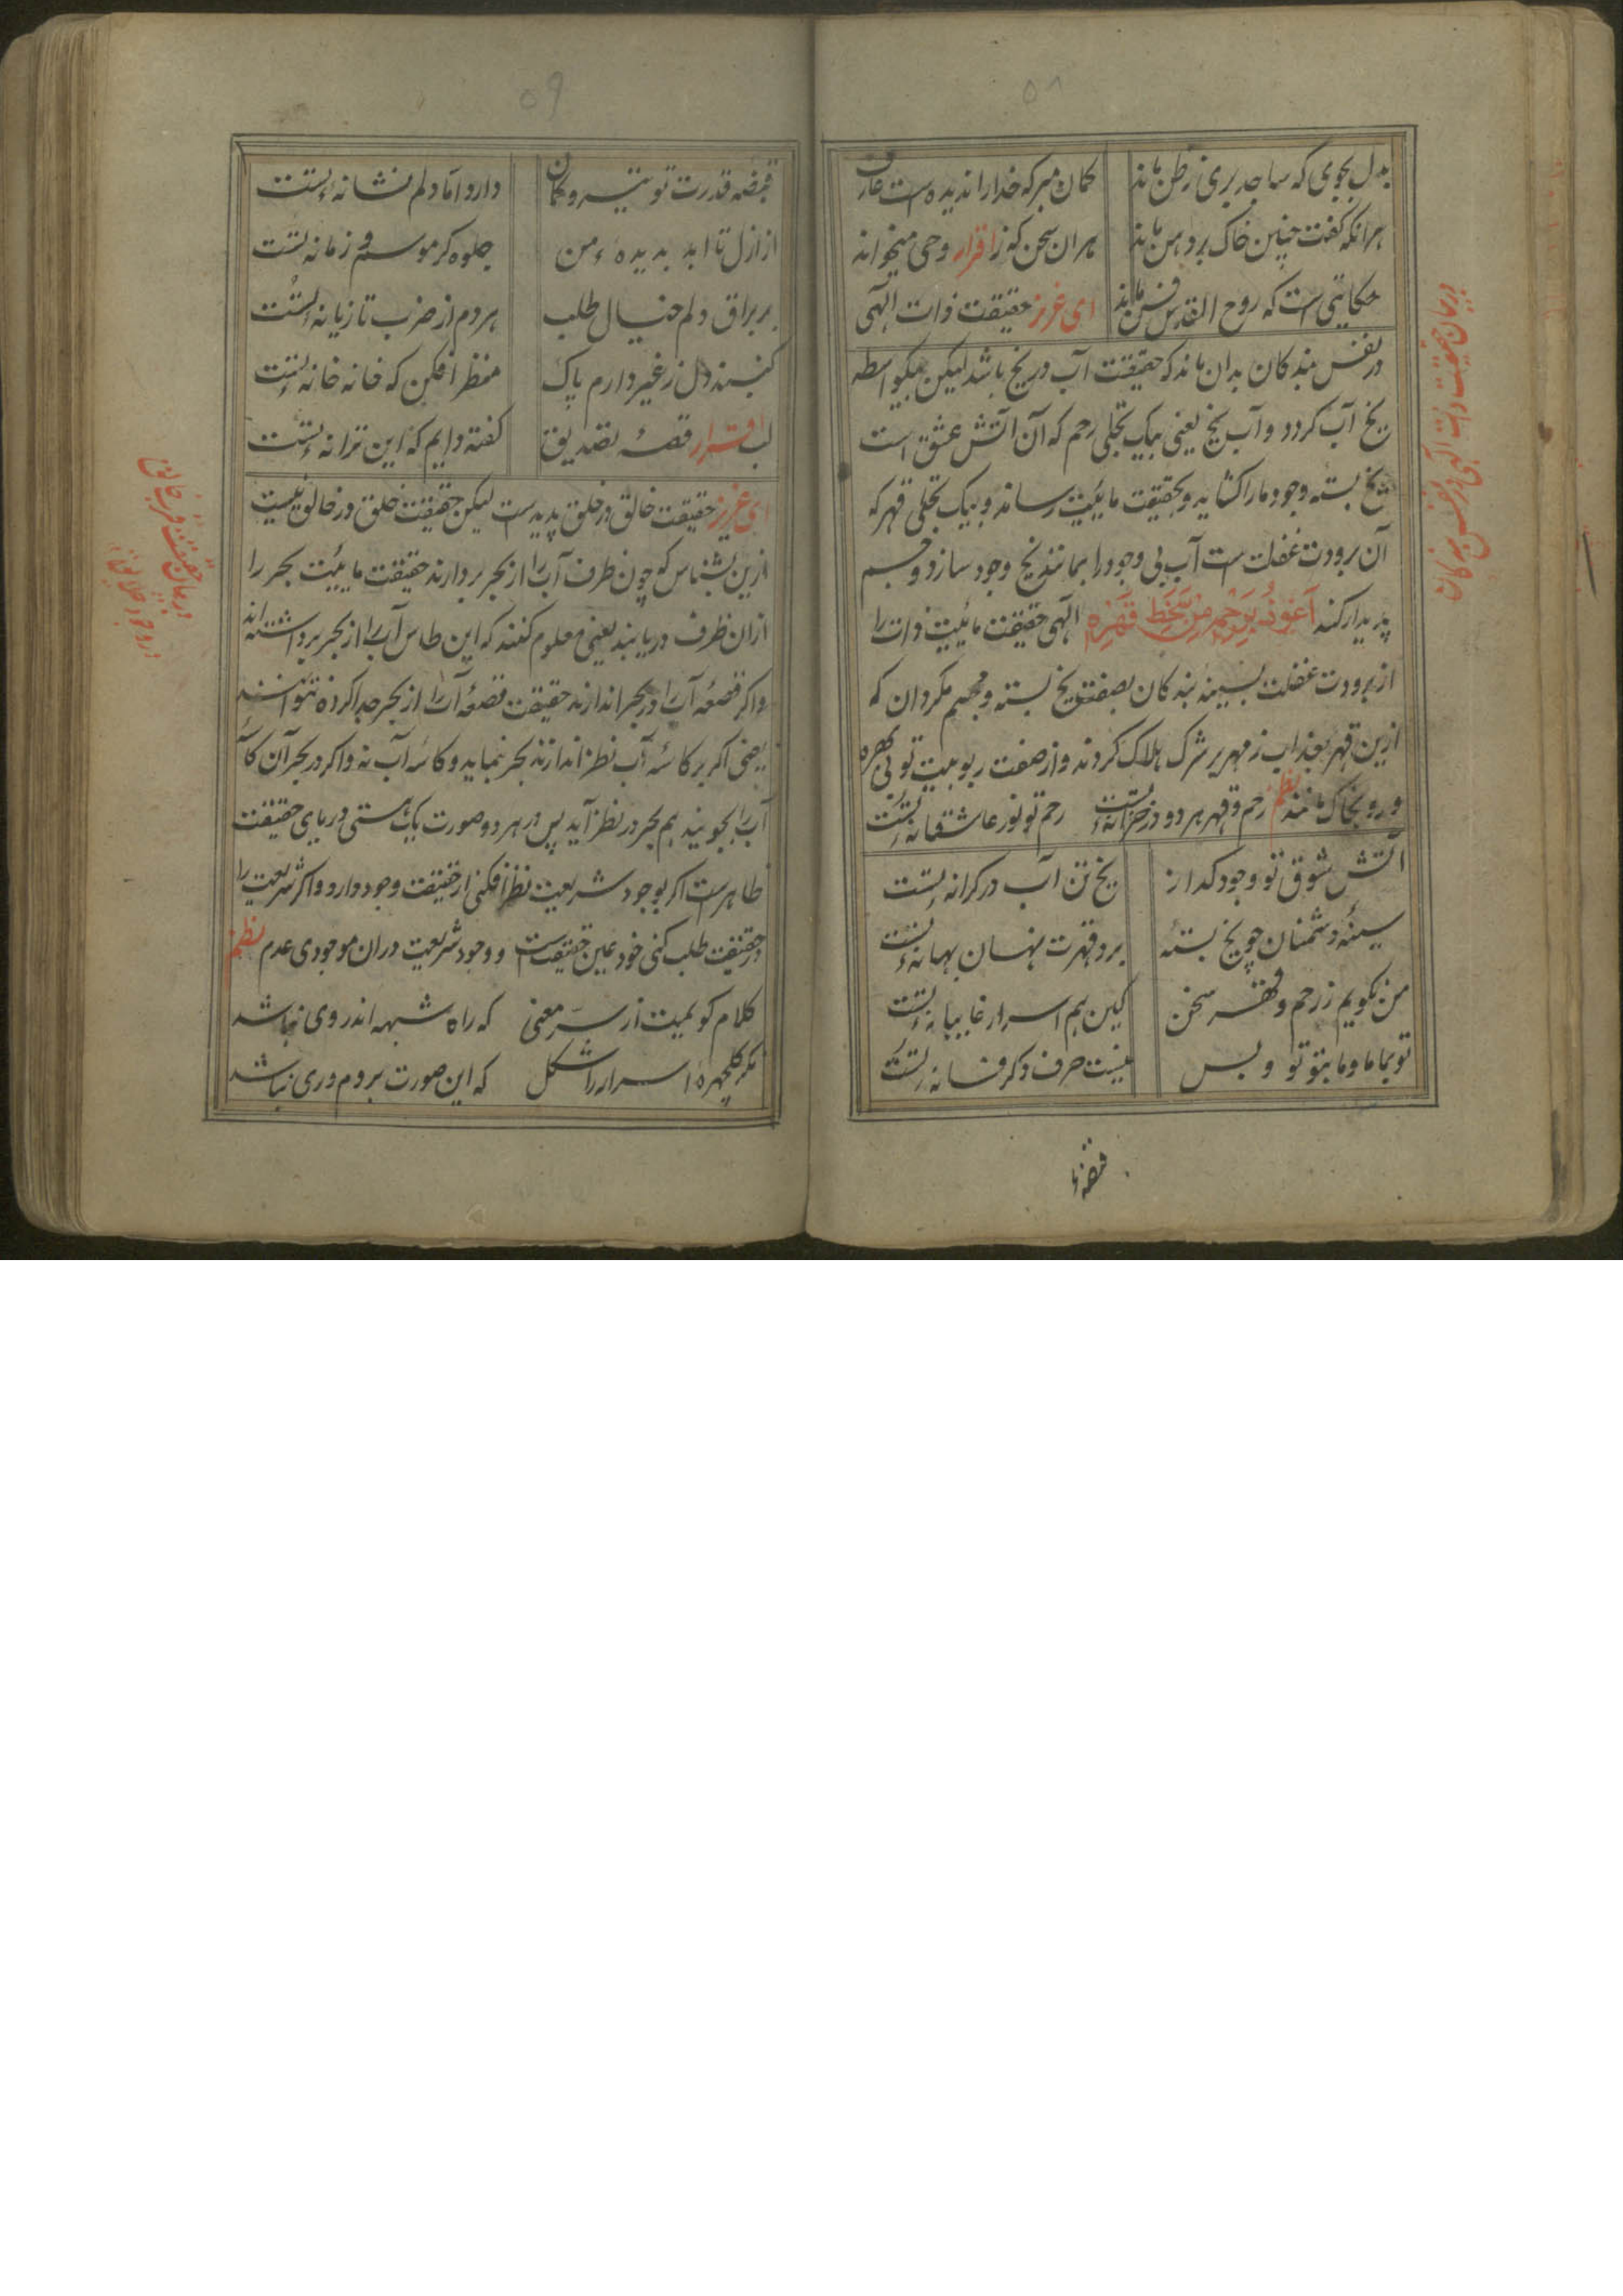 ۵۸
بدل بجوی که ساجد بری ز ظن ماند گمان مبر که خدا را ندیده است عارف
هرانکه گفت چنین خاک بر دهن ماند هر ان سخن که ز اقرار وحی میخواند
حکایتی است که روح القدس ای عزیز حقیقت ذات الهی
در نفس بندکان بدان ماند که حقیقت آب در یخ باشد لیکن بیکواسطه
یخ آب کردد و آب یخ یعنی بیک تجلی رحم که آن آتش عشق است
یخ بسته وجود ما را کشاید و بحقیقت مائیت رساند و بیک تجلی قهر که
آن برودت غفلت ست آب بی وجود را بمانند یخ وجود سازد و جسم
پدیدار کند اَعُوذُ بِرَحْمِهِ مِنْ سَخَطِ قَهْرِه الهی حقیقت مائیت ذات را
از برودت غفلت بسینهٔ بندکان بصفت یخ بسته و مجسم مکردان که
ازین قهر بعذاب زمهریر شرک هلاک کردند و از صفت ربوبیت تو بی بهره
و رو بخاک مانند نظم رحم و قهر هر دو در خزانهٔ تست رحم تو نور عاشقانهٔ تست
آتش شوق تو وجود کداز یخ تن آب در کرانهٔ تست
سینهٔ دشمنان چو یخ بسته برد قهرت نهان بهانهٔ تست
من نکویم ز رحم و قهر سخن کین هم اسرار غایبانهٔ تست
تو بما ما و ما بتو تو و بس نیست حرف دکر فسانهٔ تست
قبضهٔ
در بیان حقیقت ذات الهی در نفس بندکان
۵۹
قبضه قدرت تو تیر و کمان دارد اما دلم نشانهٔ تست
از ازل تا ابد بدیدهٔ من جلوه کر موسم و زمانهٔ تست
بر براق دلم خیال طلب هر دم از ضرب تازیانهٔ تست
کنبند دل ز غیر دارم پاک منظر افکن که خانه خانهٔ تست
لب اقرار قصهٔ تصدیق کفته دایم که این ترانهٔ تست
ای عزیز حقیقت خالق در خلق پدیدست لیکن حقیقت خلق در خالق نیست
ازین بشناس که چون ظرف آب را از بحر بردارند حقیقت مائیت بحر را
ازان ظرف دریابند یعنی معلوم کنند که این طاس آب را از بحر برداشته اند
و اکر قصعهٔ آب را در بحر اندازند حقیقت قصعهٔ آب را از بحر جدا کرده نتوانند
یعنی اکر بر کاسهٔ آب نظر اندازند بحر نماید و کاسهٔ آب نه و اکر در بحر آن کاسهٔ
آب را بجویند هم بحر در نظر آید پس در هر دو صورت یک هستی دریای حقیقت
ظاهرست اکر بوجود شریعت نظر افکنی از حقیقت وجود دارد و اکر شریعت را
در حقیقت طلب کنی خود عین حقیقت است و وجود شریعت دران موجودی عدم نظم
کلام کویمیت از سرّ معنی که راه شبهه اندر وی نباشد
مکر کلچهرهٔ اسرار را شکل که این صورت بروم و ری نباشد
در بیان حقیقت